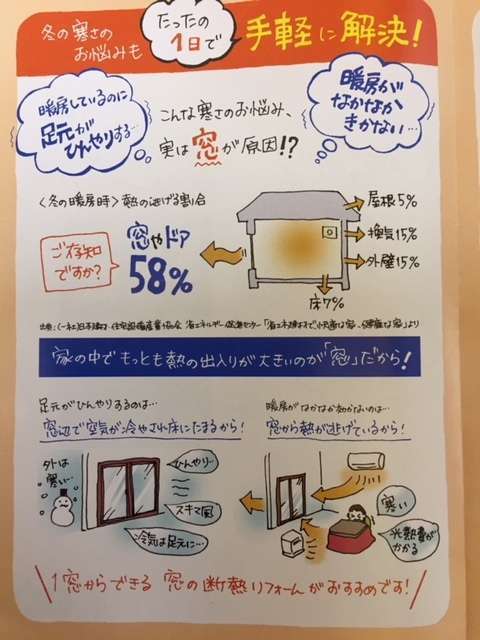 冬の寒さの
お悩みも
たったの
1日で
手軽に解決!
暖房しているのに
足元が
ひんやりする…
こんな寒さのお悩み、
実は窓が原因!?
暖房が
なかなか
きかない…
〈冬の暖房時〉熱の逃げる割合
ご存知
ですか?
窓やドア
58%
屋根5%
換気15%
外壁15%
床7%
出典:(一社)日本建材・住宅設備産業協会 省エネルギー建材普及センター「省エネ建材で、快適な家、健康な家」より
家の中でもっとも熱の出入りが大きいのが「窓」だから!
足元がひんやりするのは…
窓辺で空気が冷やされ床にたまるから!
外は
寒い…
ひんやり…
スキマ風
冷気は足元に…
暖房がなかなか効かないのは…
窓から熱が逃げているから!
寒い
光熱費が
かかる
1窓からできる 窓の断熱リフォームがおすすめです!